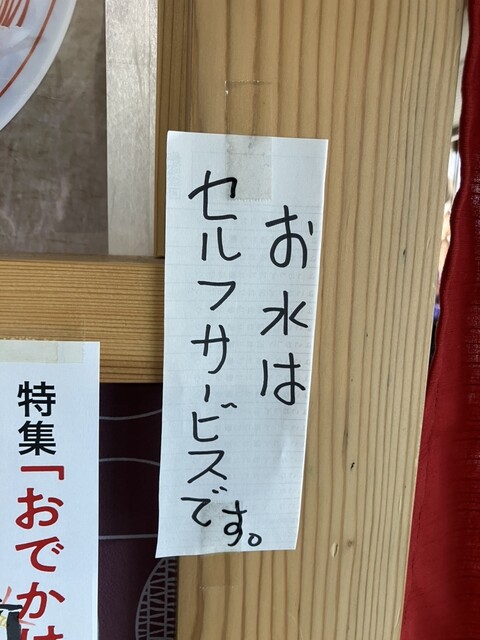 お水は
セルフサービスです。
特集「おでかけ